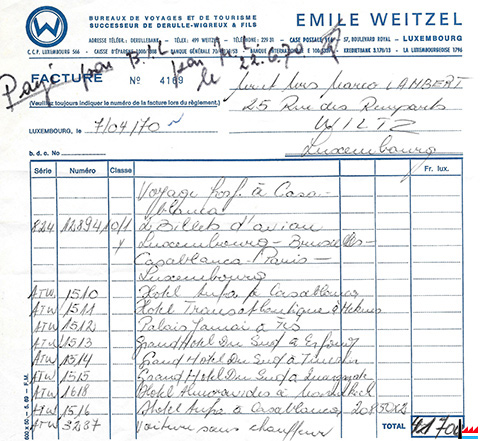 BUREAUX DE VOYAGES ET DE TOURISME
SUCCESSEUR DE DERULLE-WIGREUX & FILS
EMILE WEITZEL
ADRESSE TÉLÉGR.: DERULLEBANK - TÉLÉPH.: 499 WEITZEL - TÉLEX: 229.01 - CASE POSTALE - 57, BOULEVARD ROYAL - LUXEMBOURG
C.C.P. LUXEMBOURG 566 - CAISSE D'ÉPARGNE - BANQUE GÉNÉRALE - BANQUE INTERNATIONALE - KREDIETBANK - LA LUXEMBOURGEOISE 1796
Payé par B.I.L
le 22.6.70
FACTURE Nº 4169
(Veuillez toujours indiquer le numéro de la facture lors du règlement.)
LAMBERT
25 Rue des Remparts
WILTZ
Luxembourg
LUXEMBOURG, le 7/04/70
b. d. c. No
Série Numéro Classe Fr. lux.
Voyage forf. à Casa-
blanca
824 12894 10/1 2 Billets d'avion
Luxembourg - Bruxelles -
Casablanca - Paris -
Luxembourg
ATW 1510 Hotel Anfa à Casablanca
ATW 1511 Hotel Transatlantique à Meknes
ATW 1512 Palais Jamai à Fes
ATW 1513 Grand Hotel Du Sud à Erfoud
ATW 1514 Grand Hotel Du Sud à
ATW 1515 Grand Hotel Du Sud à
ATW 1618 Hotel Almoravides à Marrakech
ATW 1516 Hotel Anfa à Casablanca
ATW 3237 Voiture sans chauffeur
TOTAL 41700